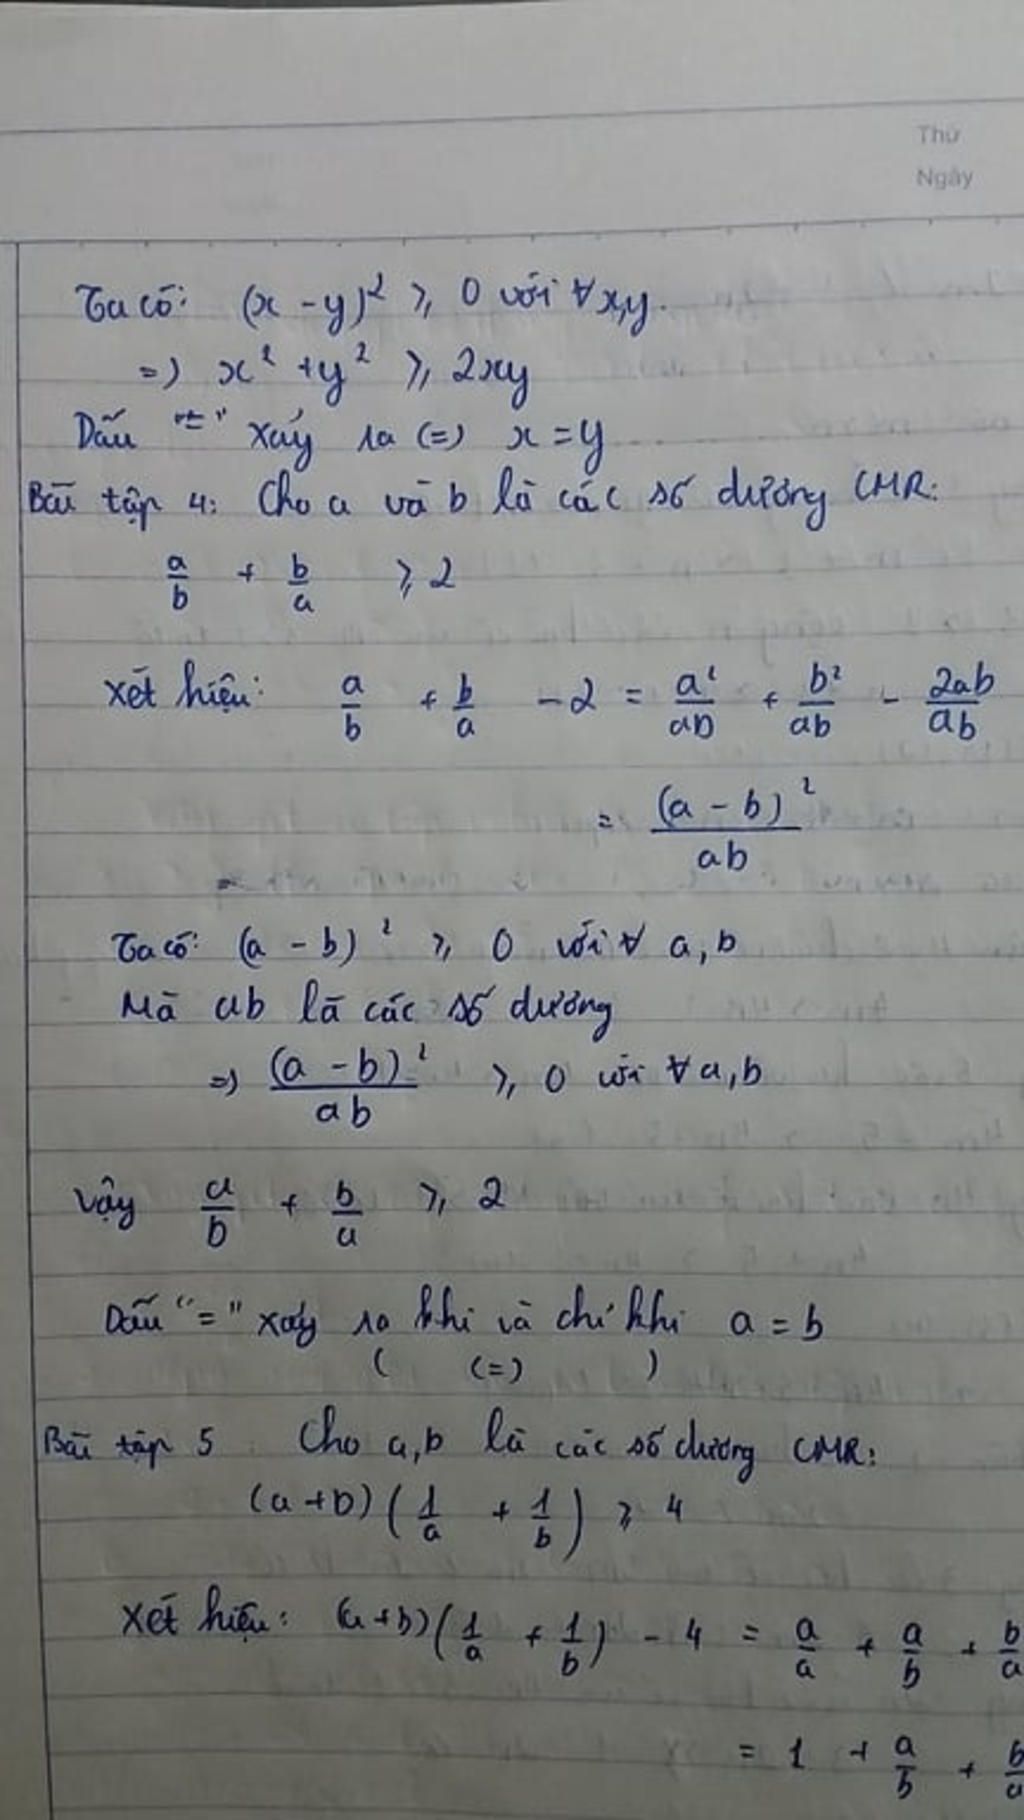 Thứ
Ngày
Ta có: (x - y)² ⩾ 0 với ∀x,y.
=) x² + y² ⩾ 2xy
Dấu "=" xảy ra (=) x = y
Bài tập 4: Cho a và b là các số dương CMR:
a/b + b/a ⩾ 2
Xét hiệu: a/b + b/a - 2 = a²/ab + b²/ab - 2ab/ab
= (a - b)²/ab
Ta có: (a - b)² ⩾ 0 với ∀ a, b
Mà ab là các số dương
=) (a - b)²/ab ⩾ 0 với ∀ a, b
Vậy a/b + b/a ⩾ 2
Dấu "=" xảy ra khi và chỉ khi a = b
( (=) )
Bài tập 5 Cho a, b là các số dương CMR:
(a + b) (1/a + 1/b) ⩾ 4
Xét hiệu: (a + b) (1/a + 1/b) - 4 = a/a + a/b + b/a
= 1 + a/b + b/a